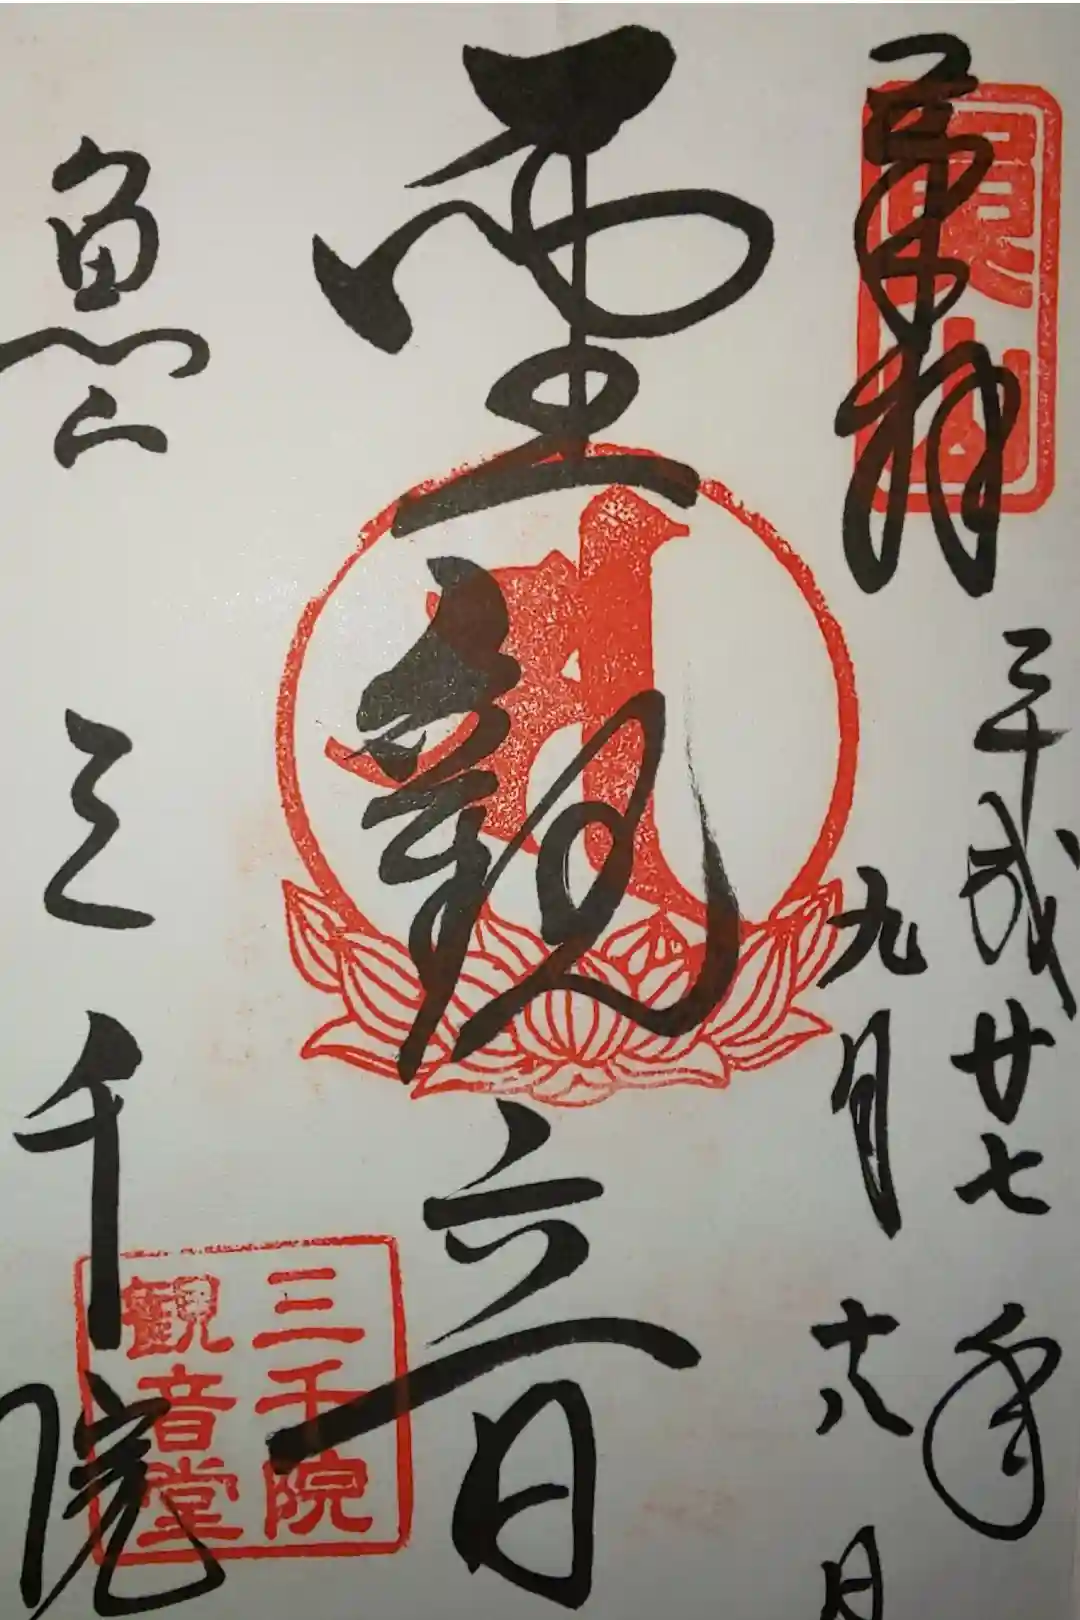 奉拝
平成廿七年
九月十八日
聖観音
魚山
三千院
三千院
観音堂